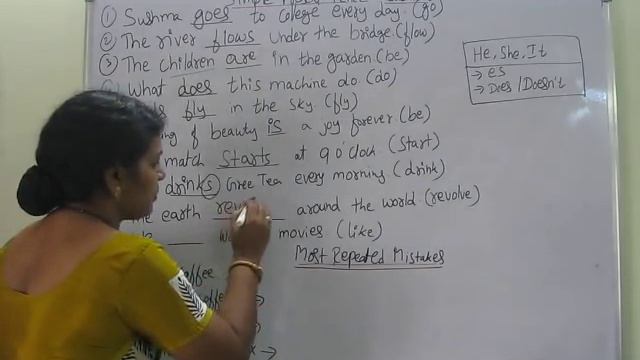 ① Sushma goes to college every day. (go)
② The river flows under the bridge. (flow)
③ The children are in the garden. (be)
What does this machine do. (do)
fly in the sky. (fly)
of beauty is a joy forever (be)
match starts at 9 o'clock (start)
drinks Gree Tea every morning (drink)
The earth revo around the world (revolve)
movies (like)
He, She, It
→ es
→ Does / Doesn't
Most Repeated Mistakes